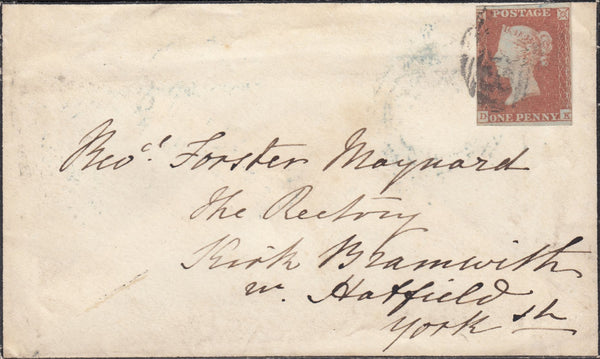 POSTAGE
D ONE PENNY K
Revd. Forster Maynard
The Rectory
Kirk Bramwith
nr. Hatfield
York sh